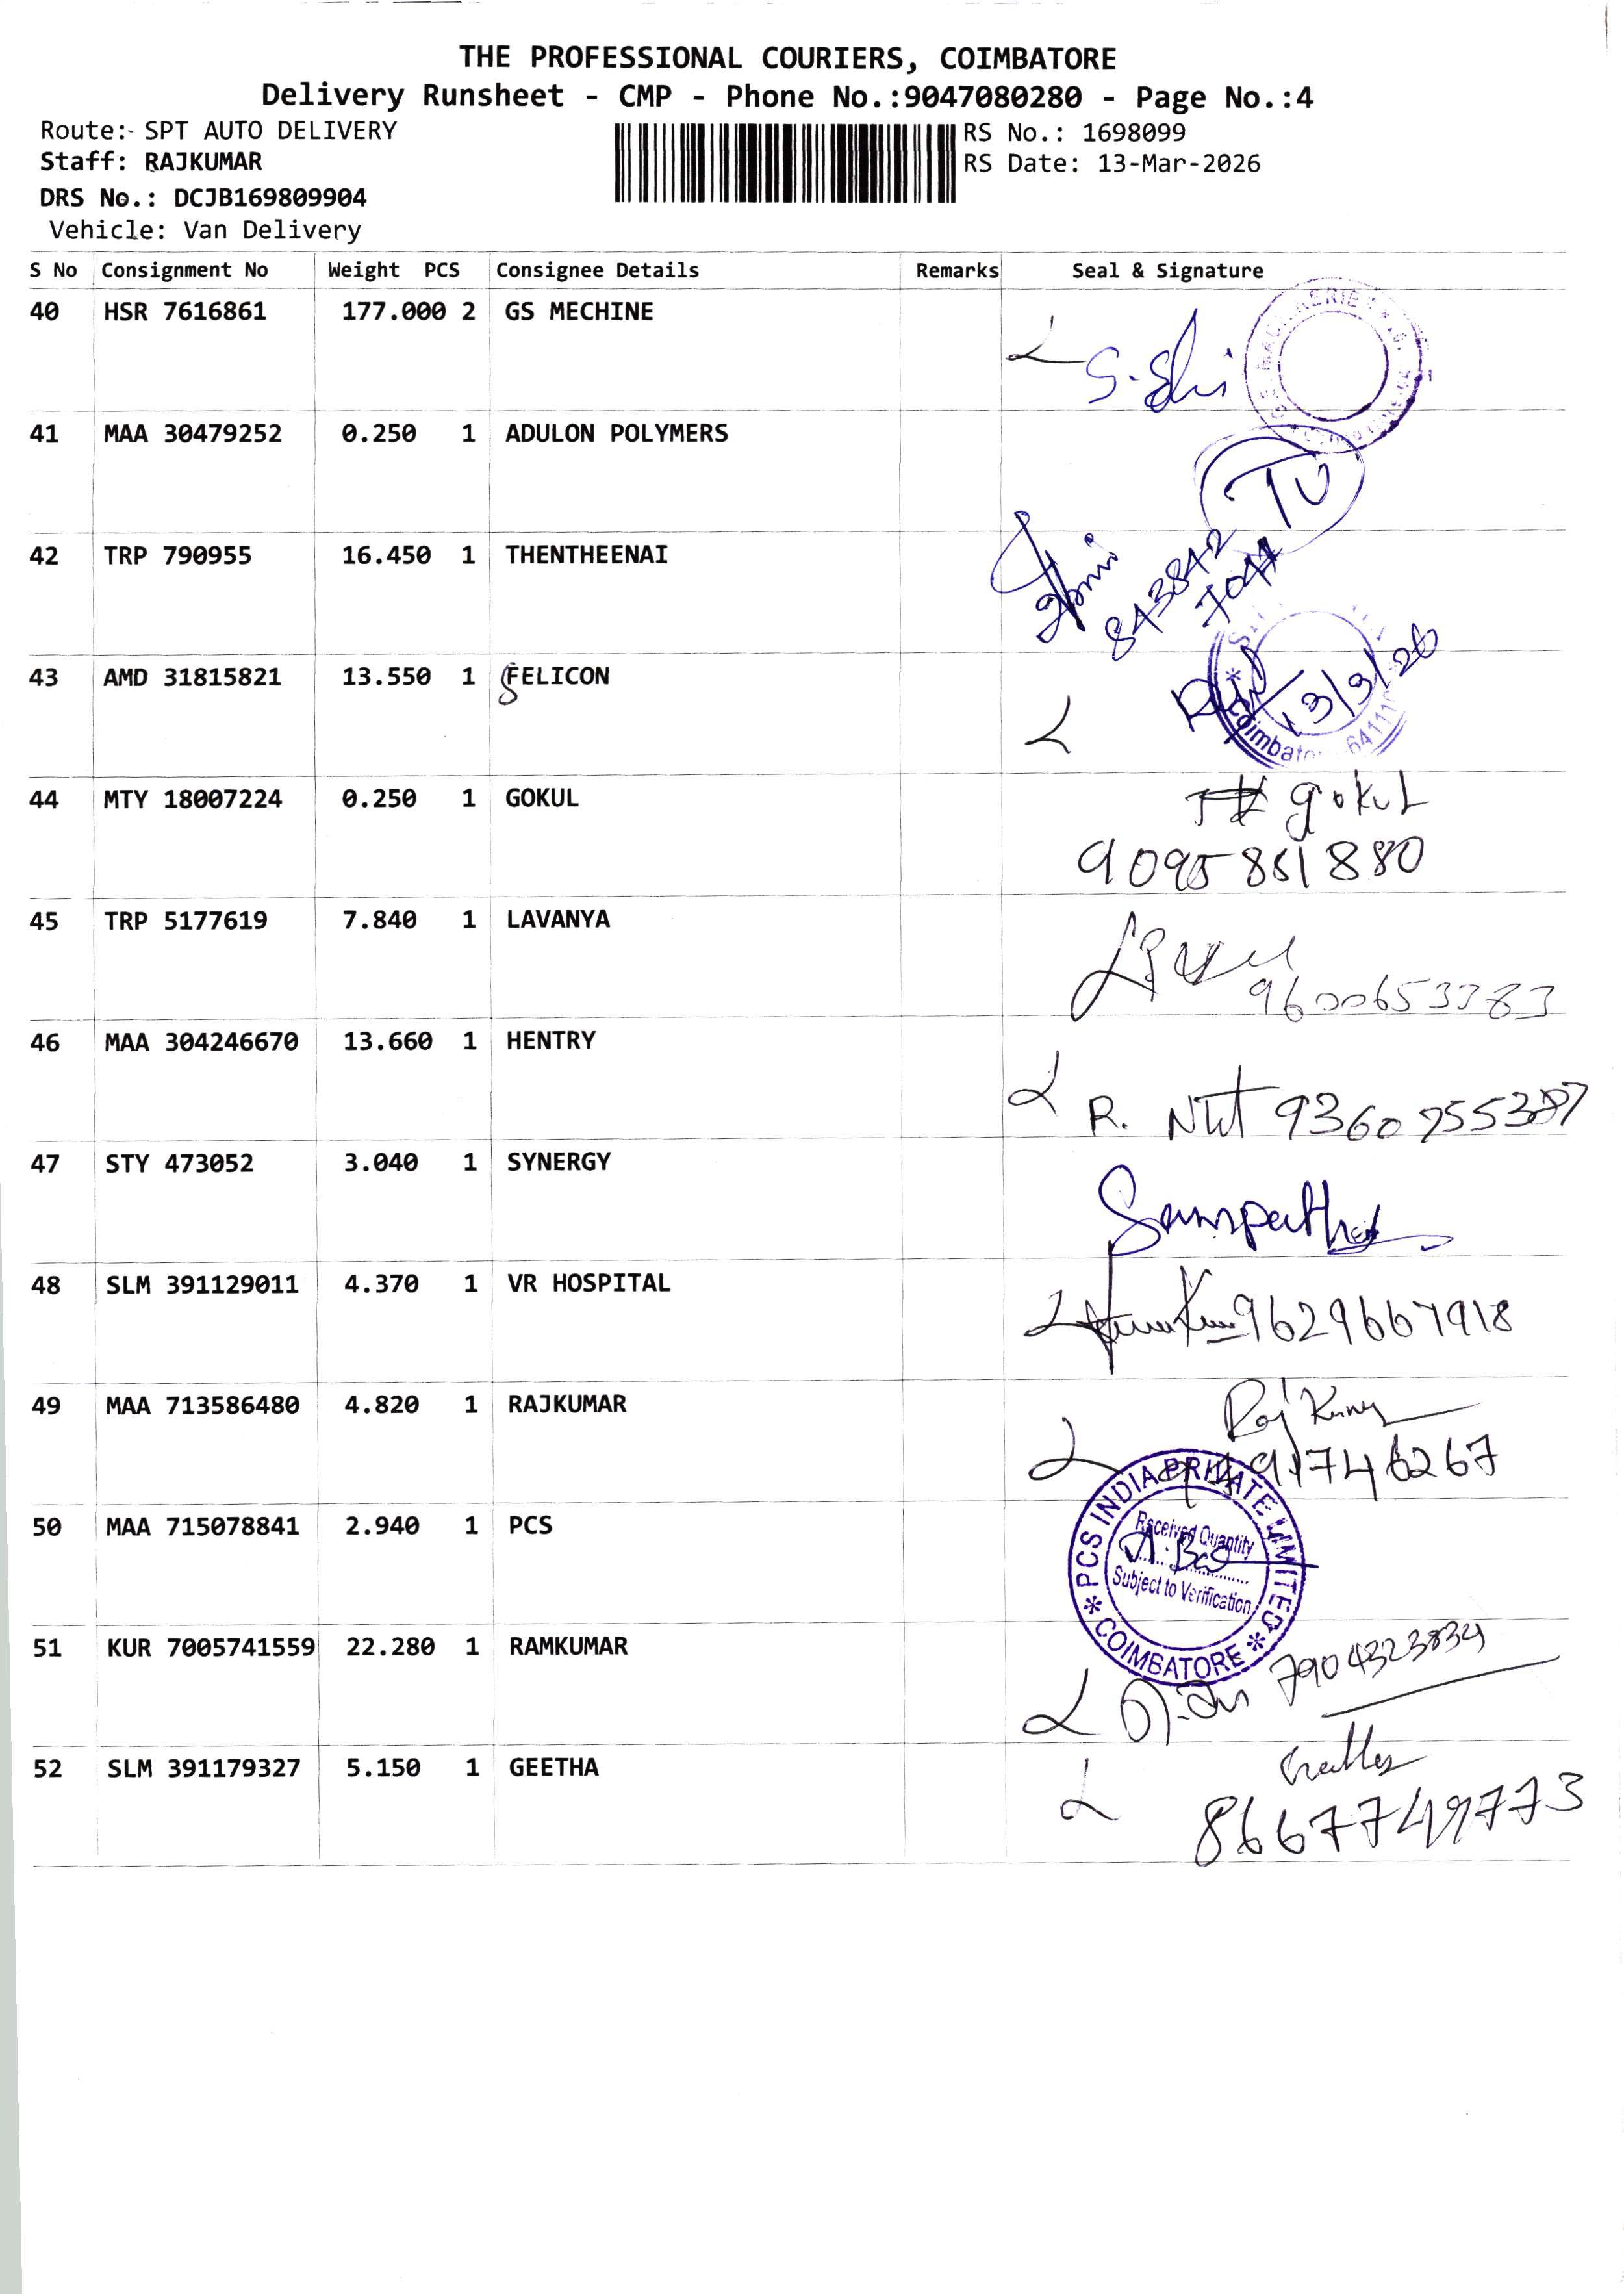 THE PROFESSIONAL COURIERS, COIMBATORE
Delivery Runsheet - CMP - Phone No.:9047080280 - Page No.:4
Route:- SPT AUTO DELIVERY
RS No.: 1698099
Staff: RAJKUMAR
RS Date: 13-Mar-2026
DRS No.: DCJB169809904
Vehicle: Van Delivery
S No Consignment No Weight PCS Consignee Details Remarks Seal & Signature
40 HSR 7616861 177.000 2 GS MECHINE
41 MAA 30479252 0.250 1 ADULON POLYMERS
42 TRP 790955 16.450 1 THENTHEENAI
843842
7044
43 AMD 31815821 13.550 1 FELICON
13/3/26
Coimbatore 64111
44 MTY 18007224 0.250 1 GOKUL
gokul
9095861880
45 TRP 5177619 7.840 1 LAVANYA
9600653383
46 MAA 304246670 13.660 1 HENTRY
R.
47 STY 473052 3.040 1 SYNERGY
48 SLM 391129011 4.370 1 VR HOSPITAL
9629667918
49 MAA 713586480 4.820 1 RAJKUMAR
RajKumar
50 MAA 715078841 2.940 1 PCS
* PCS INDIA PRIVATE LIMITED *
COIMBATORE
Received Quantity
Subject to Verification
51 KUR 7005741559 22.280 1 RAMKUMAR
7904323834
52 SLM 391179327 5.150 1 GEETHA
8667749773